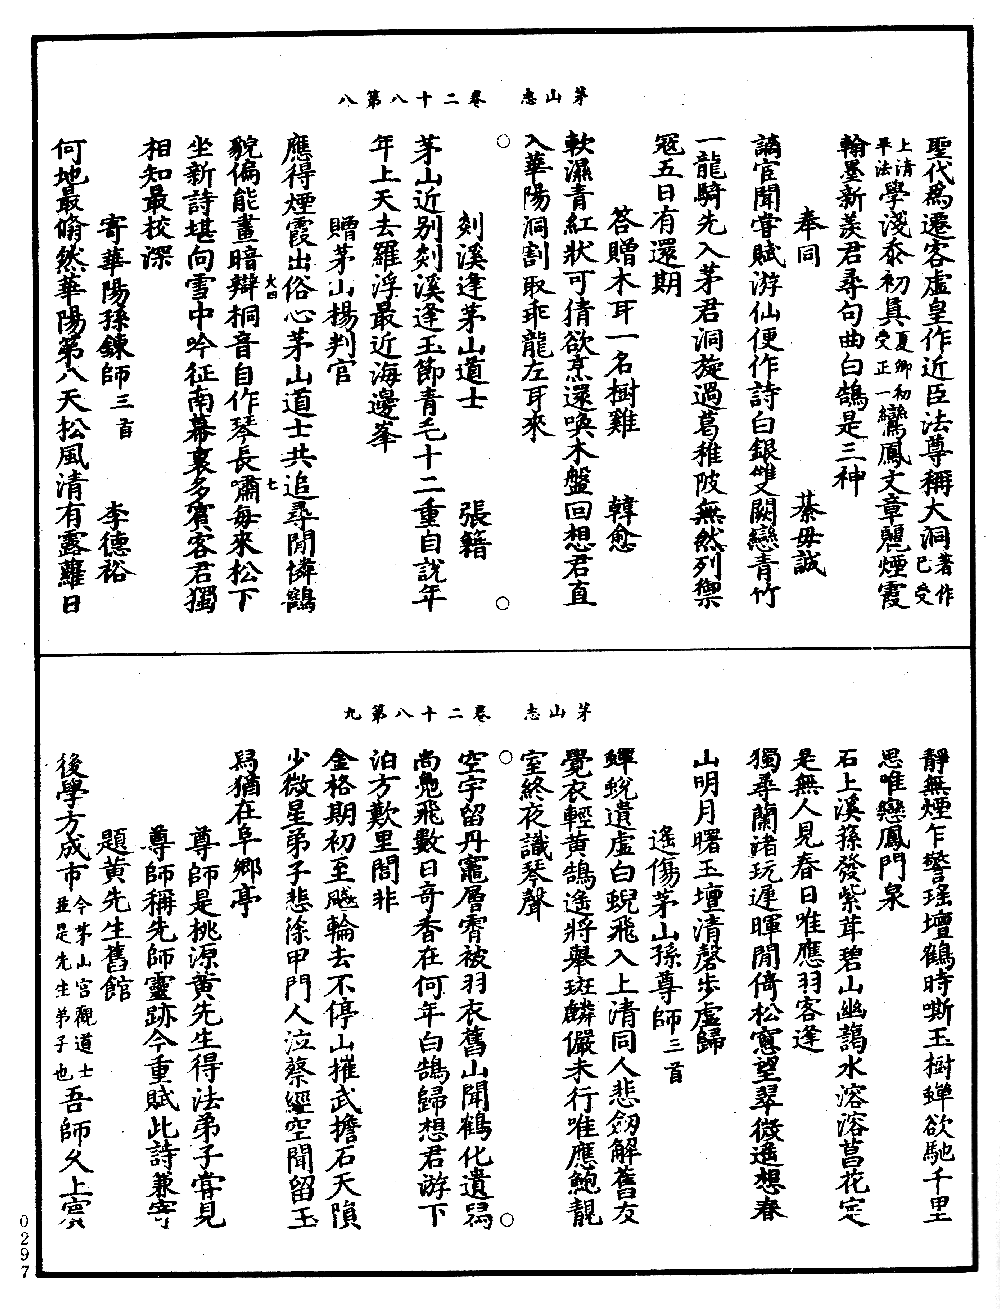 茅山志　卷二十八第八
聖代爲遷客虛皇作近臣法尊稱大洞著作已受
上清平法學淺忝初真夏鄉初受正一鸞鳳文章麗煙霞
翰墨新羨君尋句曲白鵠是三神
奉同　綦毋誠
謫官聞嘗賦游仙便作詩白銀雙闕戀青竹
一龍騎先入茅君洞旋過葛稚陂無然列禦
冠五日有還期
答贈木耳一名樹雞　韓愈
軟濕青紅狀可猜欲烹還喚木盤回想君直
入華陽洞割取乖龍左耳來
○　○
剡溪逢茅山道士　張籍
茅山近別剡溪逢玉節青毛十二重自說年
年上天去羅浮最近海邊峯
贈茅山楊判官
應得煙霞出俗心茅山道士共追尋閒憐鶴
貌偏能畫暗辯桐音自作琴長嘯每來松下
坐新詩堪向雪中吟征南幕裏多賓客君獨
相知最校深
寄華陽孫鍊師三首　李德裕
何地最翛然華陽第八天松風清有露蘿日
茅山志　卷二十八第九
靜無煙乍警瑤壇鶴時嘶玉樹蟬欲馳千里
思唯戀鳳門泉
石上溪蓀發紫茸碧山幽藹水溶溶菖花定
是無人見春日唯應羽客逢
獨尋蘭渚玩遲暉閒倚松窻望翠微遙想春
山明月曙玉壇清磬步虛歸
遙傷茅山孫尊師三首
蟬蛻遺虛白蜺飛入上清同人悲劒解舊友
覺衣輕黃鵠遙將舉斑麟儼未行唯應鮑靚
室終夜識琴聲
○　○
空宇留丹竈層霄被羽衣舊山聞鶴化遺舄
尚鳧飛數日奇香在何年白鵠歸想君游下
泊方歎里閭非
金格期初至飈輪去不停山摧武擔石天隕
少微星弟子悲徐甲門人泣蔡經空聞留玉
舄猶在阜鄉亭
尊師是桃源黃先生得法弟子甞見
尊師稱先師靈跡今重賦此詩兼寄
題黃先生舊館
後學方成市今茅山宮觀道士並是先生弟子也吾師久上賓
0297